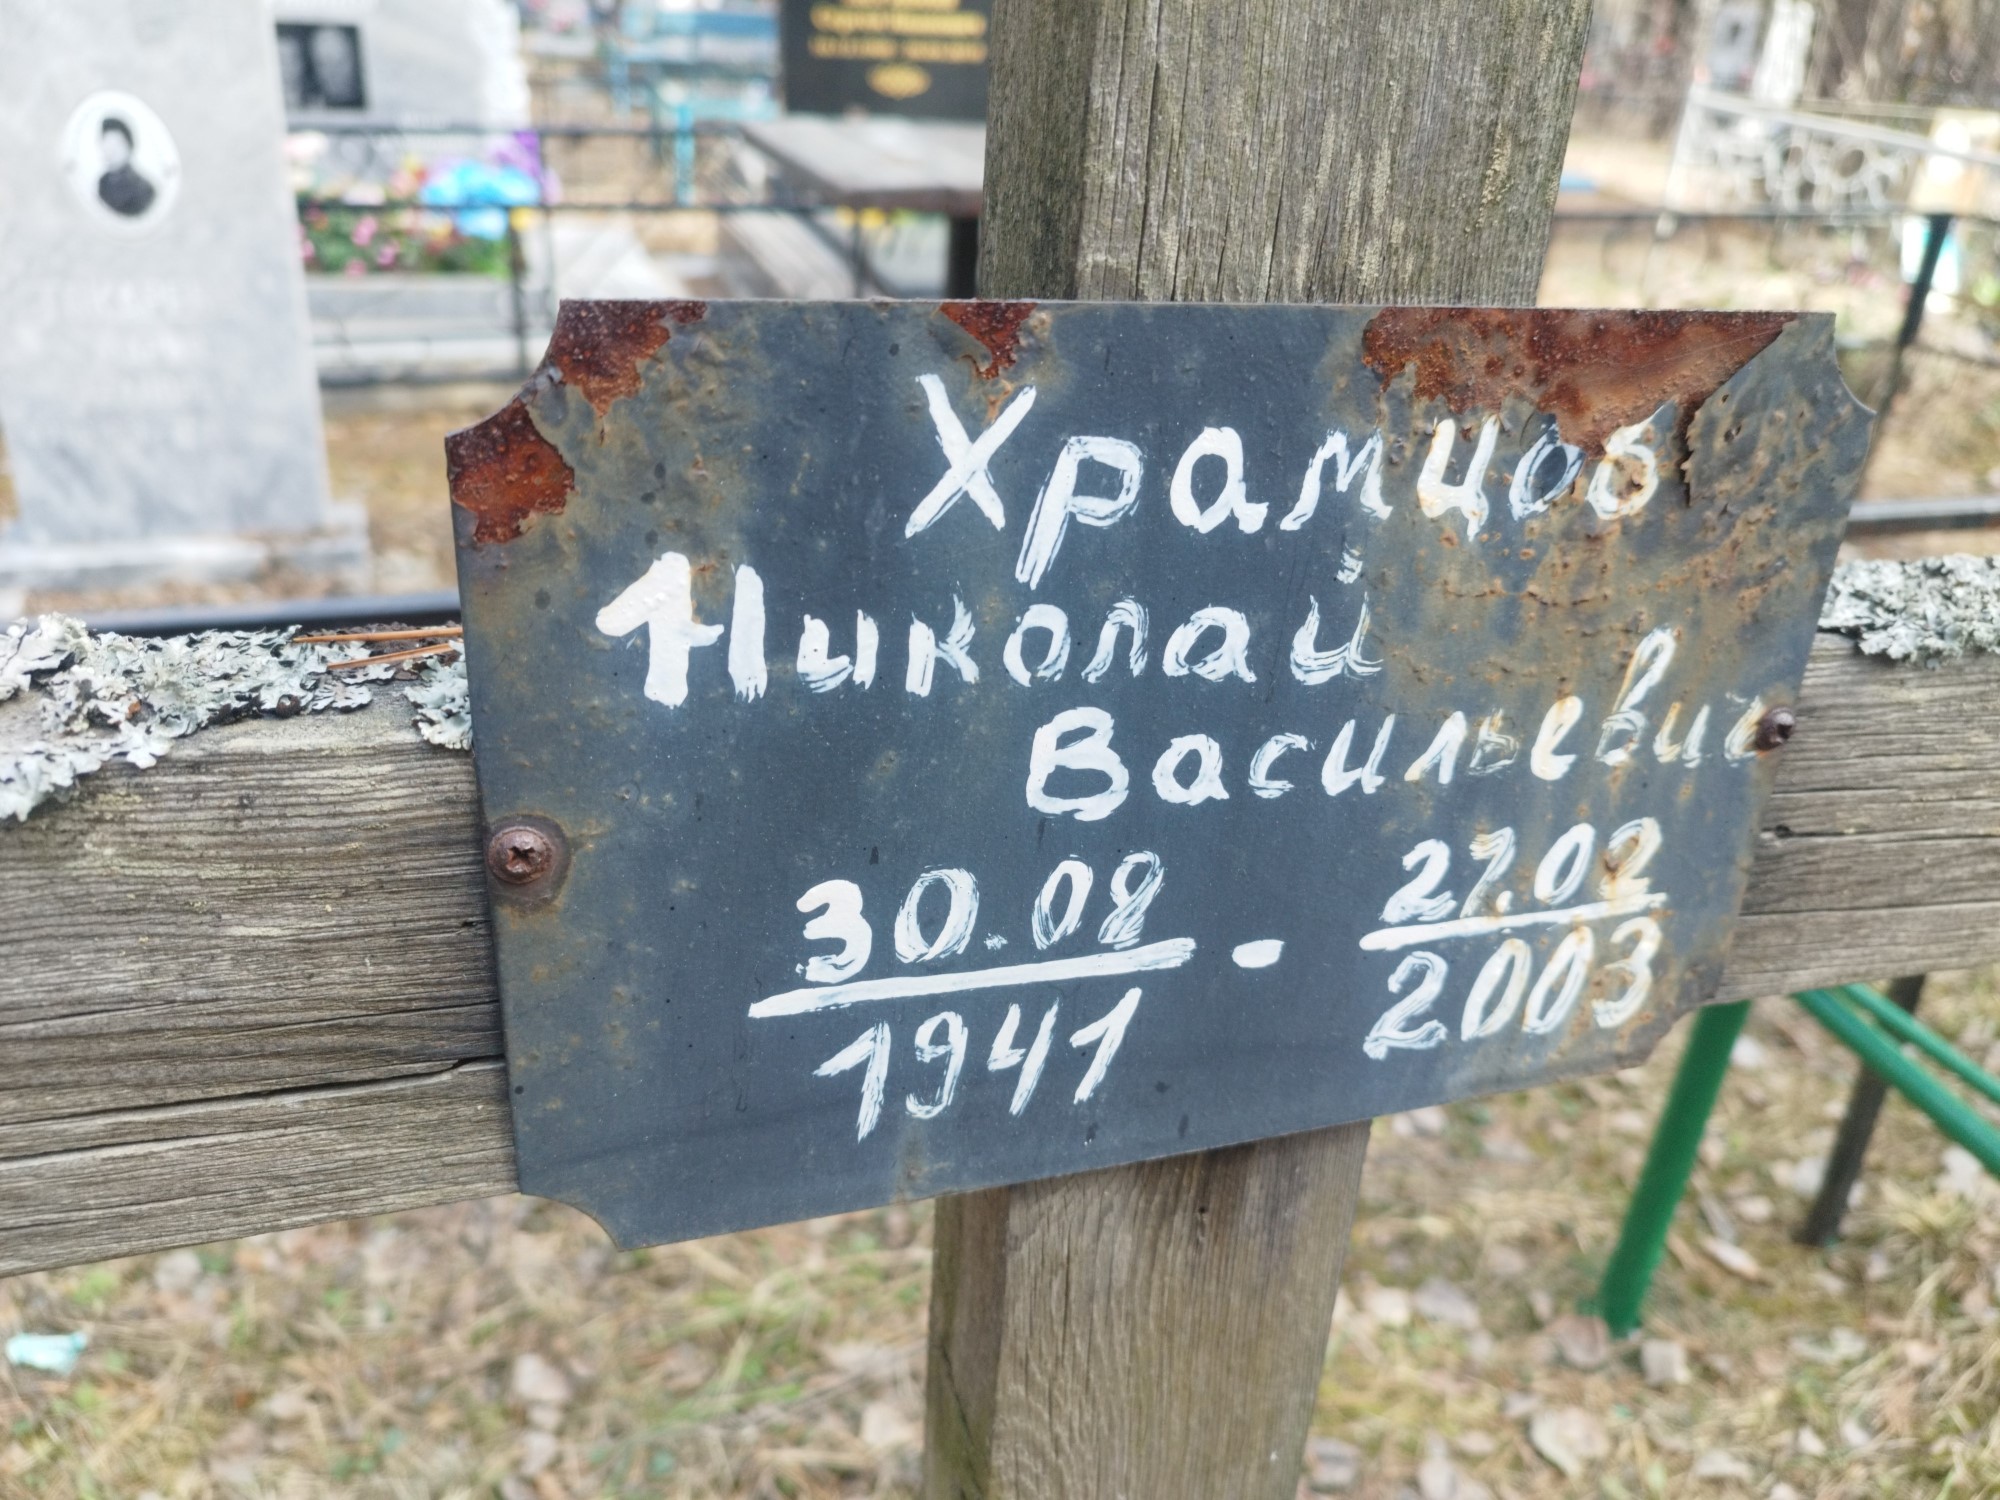 Храмцов
Николай
Васильевич
30.08 - 27.02
1941 2003